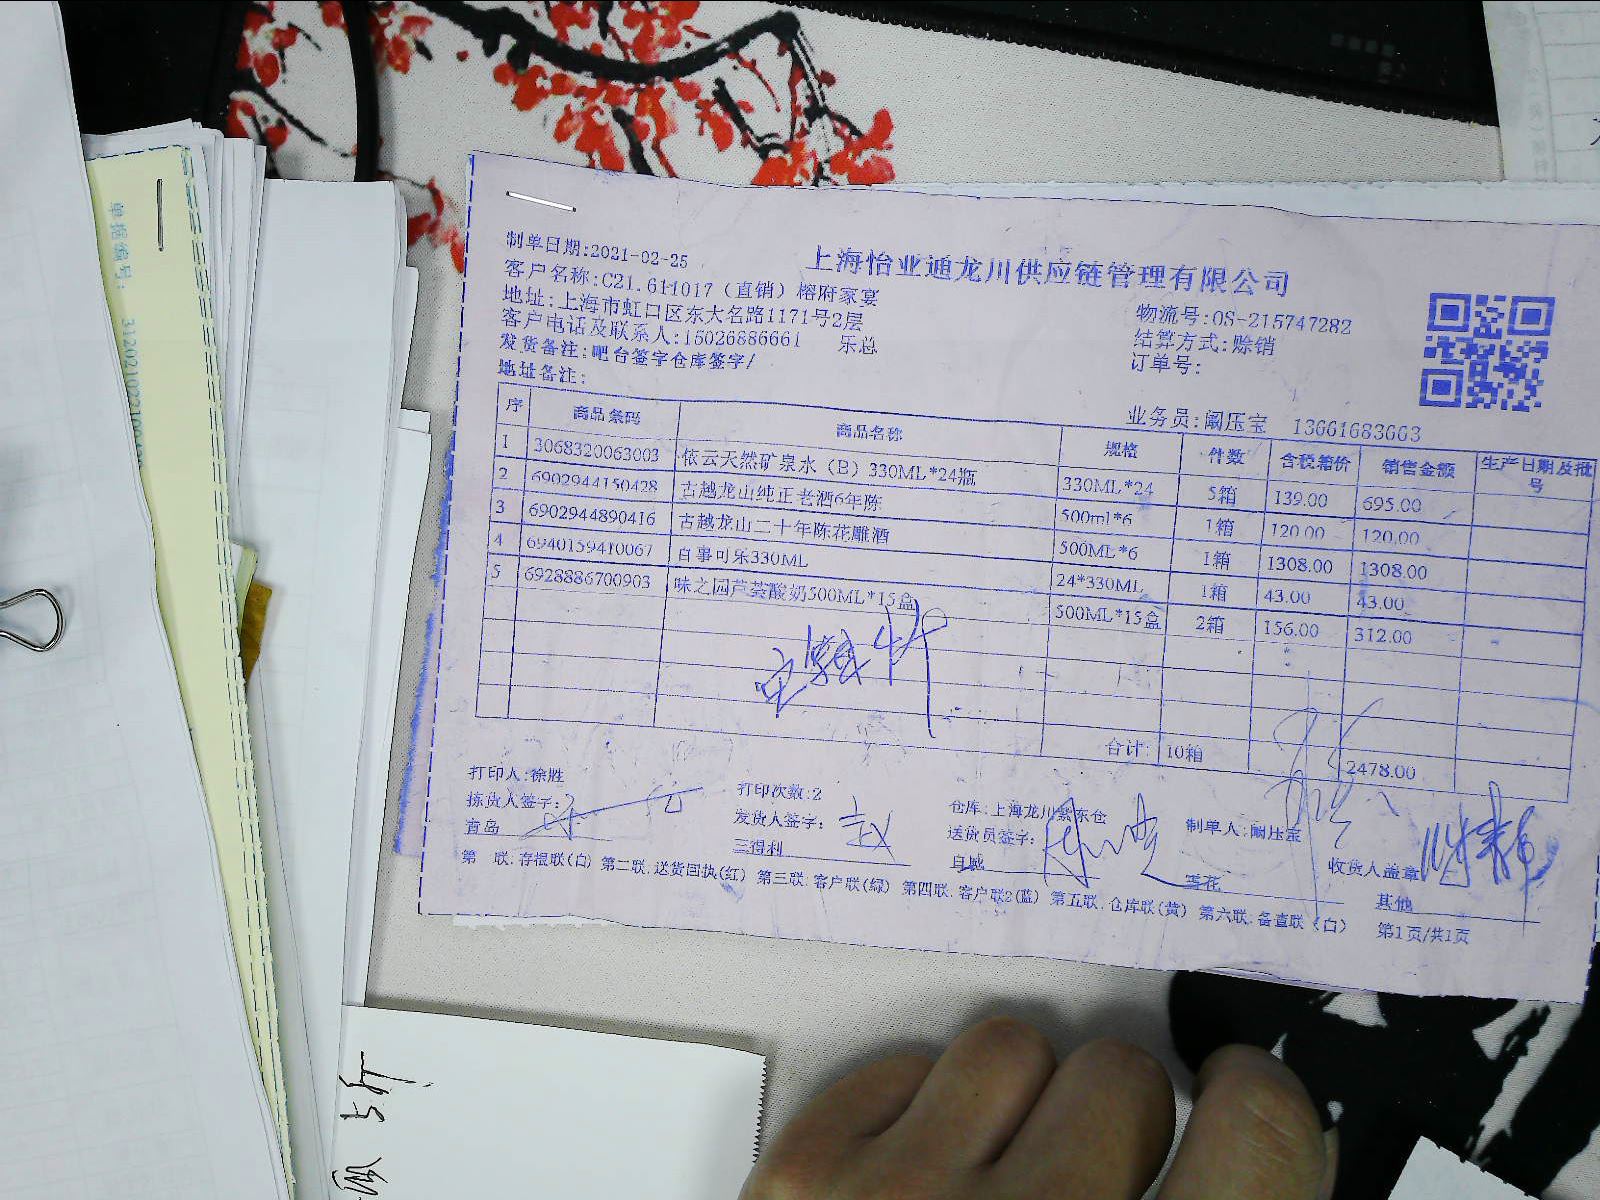 制单日期:2021-02-25
上海怡亚通龙川供应链管理有限公司
客户名称:C21.611017（直销）榕府家宴
地址:上海市虹口区东大名路1171号2层
物流号:OS-215747282
客户电话及联系人:15026886661 乐总
结算方式:赊销
发货备注:吧台签字仓库签字/
订单号:
地址备注:
业务员:阚压宝 13661683663
序 商品条码 商品名称 规格 件数 含税箱价 销售金额 生产日期及批号
1 3068320063003 依云天然矿泉水（B）330ML*24瓶 330ML*24 5箱 139.00 695.00
2 6902944150428 古越龙山纯正老酒6年陈 500ml*6 1箱 120.00 120.00
3 6902944890416 古越龙山二十年陈花雕酒 500ML*6 1箱 1308.00 1308.00
4 6940159410067 百事可乐330ML 24*330ML 1箱 43.00 43.00
5 6928886700903 味之园芦荟酸奶500ML*15盒 500ML*15盒 2箱 156.00 312.00
合计: 10箱 2478.00
打印人:徐胜 打印次数:2 仓库:上海龙川紫东仓 制单人:阚压宝
拣货人签字: 发货人签字: 送货员签字: 收货人盖章
青岛 三得利 百威 雪花 其他
第一联.存根联(白) 第二联.送货回执(红) 第三联.客户联(绿) 第四联.客户联2(蓝) 第五联.仓库联(黄) 第六联.备查联(白) 第1页/共1页
单据编号: